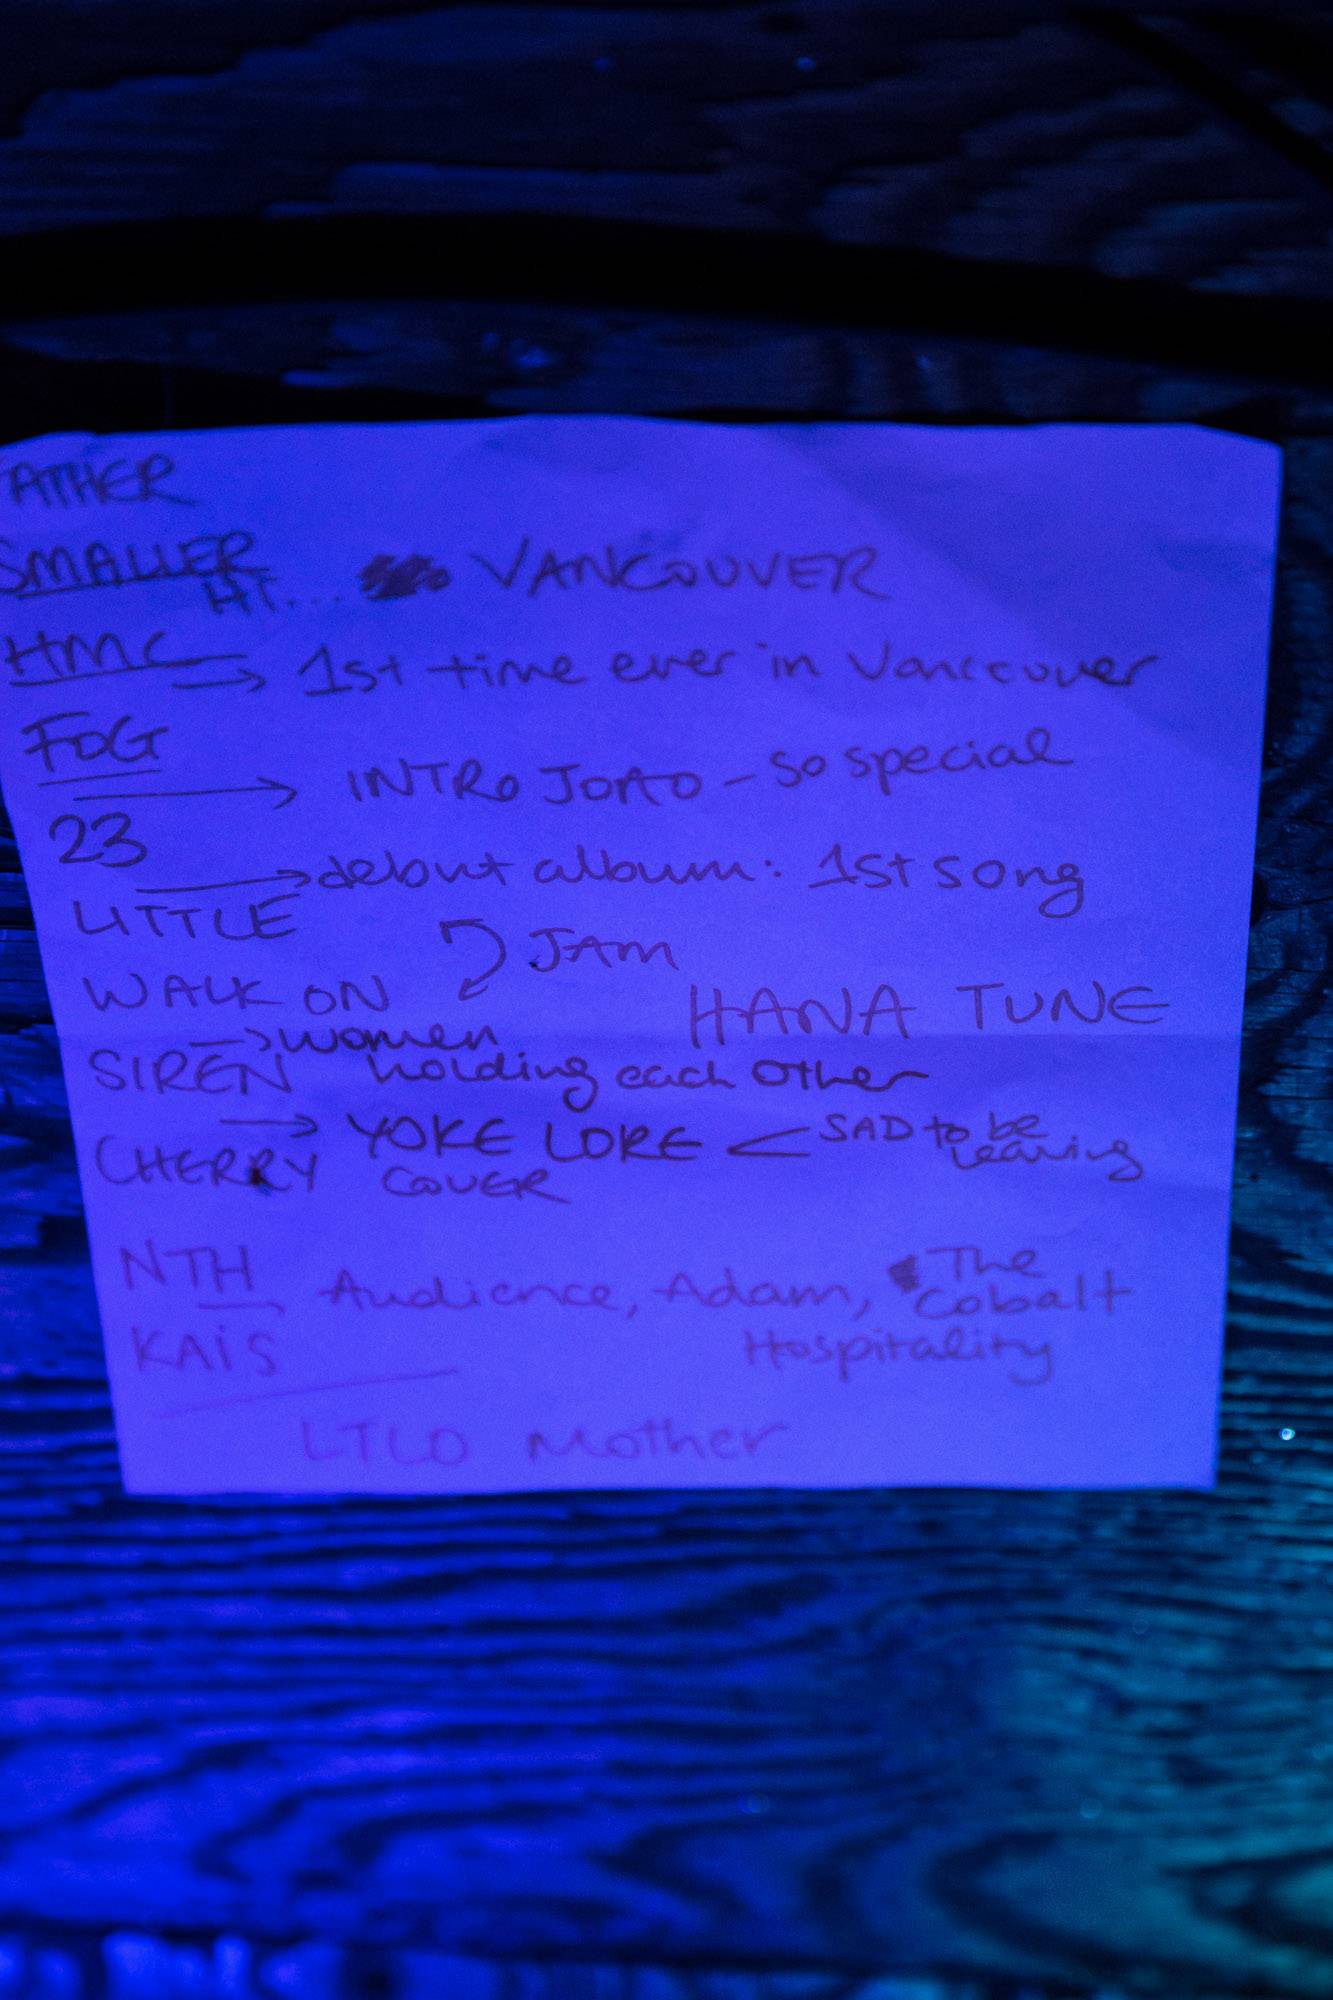 ATHER
SMALLER
HI... VANCOUVER
HMC
→ 1st time ever in Vancouver
FOG
→ INTRO JOAO - so special
23
→ debut album: 1st song
LITTLE
JAM
WALK ON HANA TUNE
→ women
SIREN holding each other
→ YOKE LORE < SAD to be
leaving
CHERRY COVER
NTH
→ Audience, Adam, The
Cobalt
KAIS Hospitality
LTLD Mother